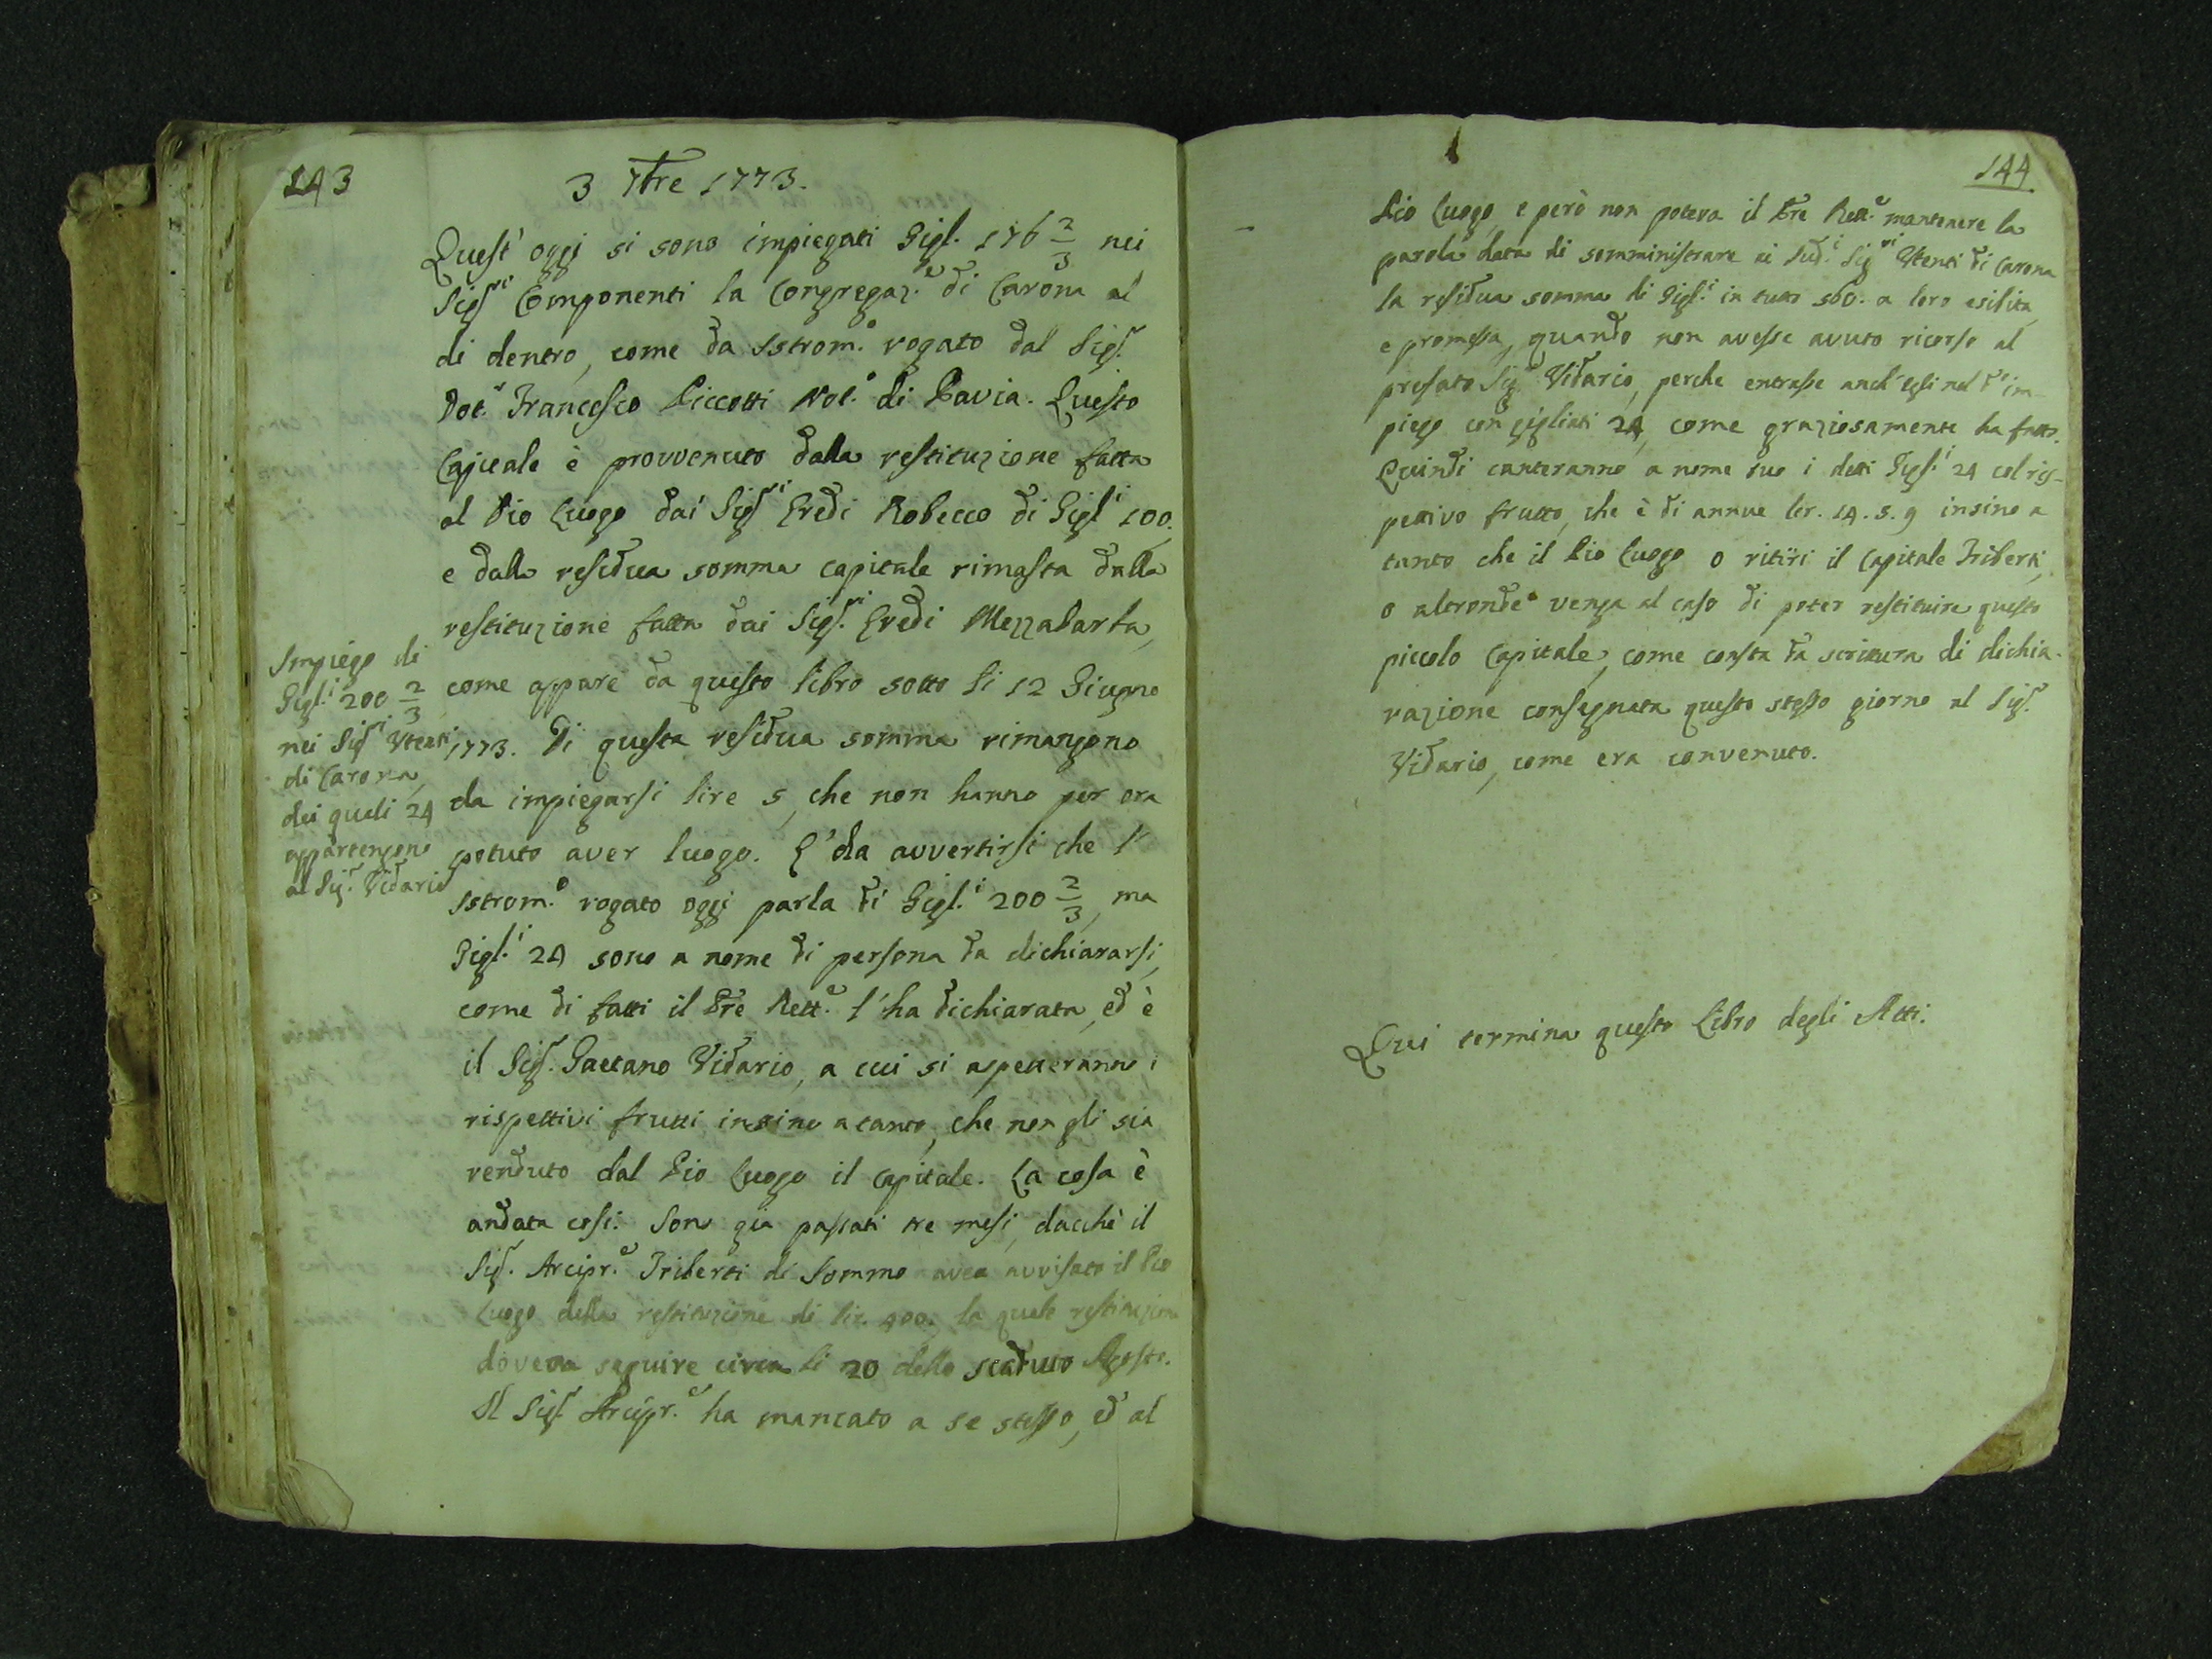 143
3 7bre 1773.
Quest' oggi si sono impiegati Gigl. 176 2/3 nei
Sigri Componenti la Congregaz.ne di Carona al
di dentro, come da Istrom.o rogato dal Sigr.
Dot.r Francesco Piccotti Not.o di Pavia. Questo
Capitale è provvenuto dalla restituzione fatta
al Pio Luogo dai Sigri Eredi Robecco di Gigli 100.
e dalla residua somma capitale rimasta dalla
restituzione fatta dai Sigri Eredi Mezzabarba,
come appare da questo libro sotto li 12 Giugno
1773. Di questa residua somma rimangono
da impiegarsi lire 5, che non hanno per ora
potuto aver luogo. E' da avvertirsi che l'
Istrom.o rogato oggi parla di Gigl.i 200 2/3, ma
Gigl.i 24 sono a nome di persona da dichiararsi,
come di fatti il Pre Rett.e l'ha dichiarata, ed è
il Sigr. Gaetano Vidario, a cui si aspetteranno i
rispettivi frutti insino a tanto, che non gli sia
renduto dal Pio Luogo il capitale. La cosa è
andata così. Sono già passati tre mesi, dacchè il
Sigr. Arcipr.e Triberti di Sommo avea avvisato il Pio
Luogo della restituzione di lir. 400, la quale restituzione
doveva seguire circa li 20 dello scaduto Agosto.
Il Sigr. Arcipr.e ha mancato a se stesso, ed al
Impiego di
Gigl.i 200 2/3
nei Sigri Utenti
di Carona,
dei quali 24
appartengono
al Sigr. Vidario
144
Pio Luogo, e però non poteva il Pre Rett.e mantenere la
parola data di somministrare ai sud.i Sigri Utenti di Carona
la residua somma di Gigl.i in tutto 560. a loro esibita,
e promessa, quando non avesse avuto ricorso al
prefato Sigr. Vidario, perche entrasse anch'egli nel do im-
piego con gigliati 24, come graziosamente ha fatto.
Quindi canteranno a nome suo i detti Gigl.i 24 col ris-
pettivo frutto, che è di annue lir. 14. 5. 9 insino a
tanto che il Pio Luogo o ritiri il Capitale Triberti,
o altronde venga al caso di poter restituire questo
piccolo Capitale, come consta da scrittura di dichia-
razione consegnata questo stesso giorno al Sigr.
Vidario, come era convenuto.
Qui termina questo Libro degli Atti.